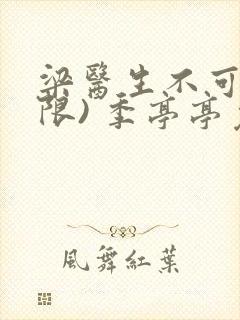 梁醫生不可
限）季亭亭
風舞紅葉